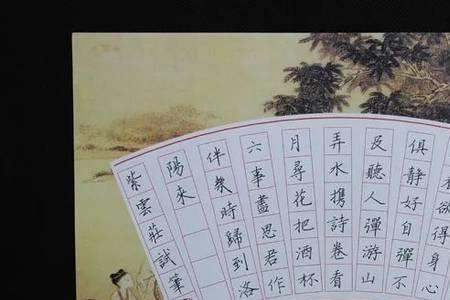 欲得身心
俱静好自彈不
及聽人彈游山
弄水携詩卷看
月尋花把酒杯
六事盡思君作
伴幾時歸到洛
陽來
紫雲莊試筆